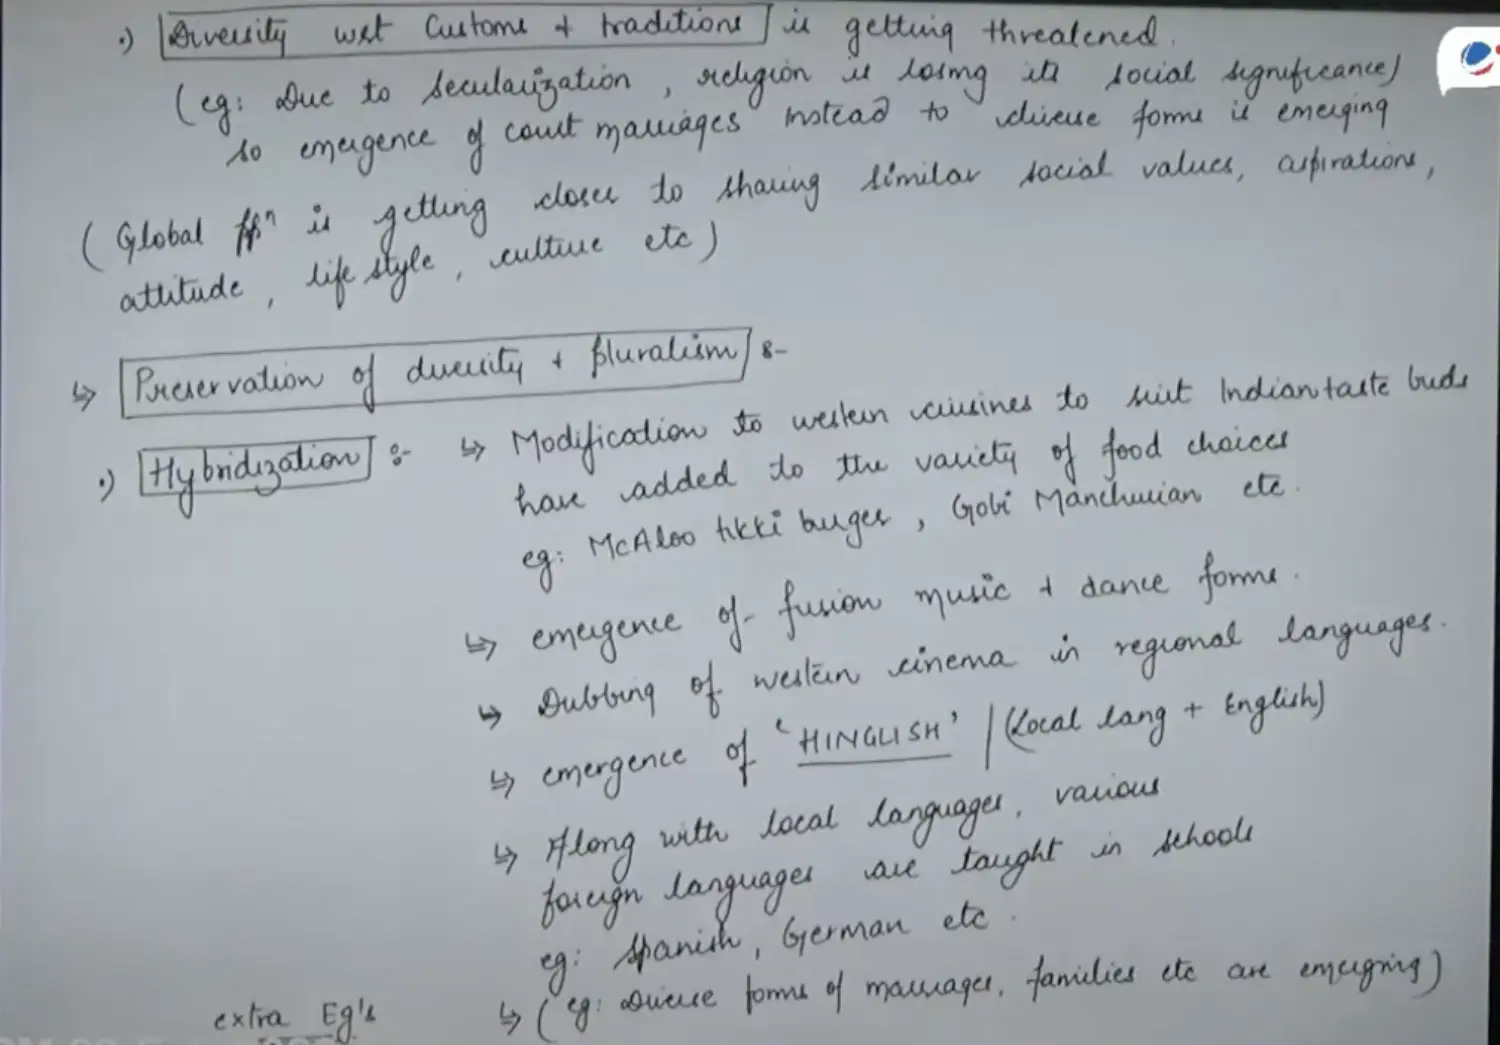 •) Diversity wrt Customs + traditions is getting threatened.
(eg: Due to secularization, religion is losing its social significance)
so emergence of court marriages instead to diverse forms is emerging
(Global ppn is getting closer to sharing similar social values, aspirations,
attitude, life style, culture etc)
↳ Preservation of diversity + pluralism :-
•) Hybridization :- ↳ Modification to western cuisines to suit Indian taste buds
have added to the variety of food choices
eg: McAloo tikki burger, Gobi Manchurian etc.
↳ emergence of fusion music + dance forms.
↳ Dubbing of western cinema in regional languages.
↳ emergence of 'HINGLISH' | (Local lang + English)
↳ Along with local languages, various
foreign languages are taught in schools
eg: Spanish, German etc.
extra Eg's ↳ (eg: Diverse forms of marriages, families etc are emerging)